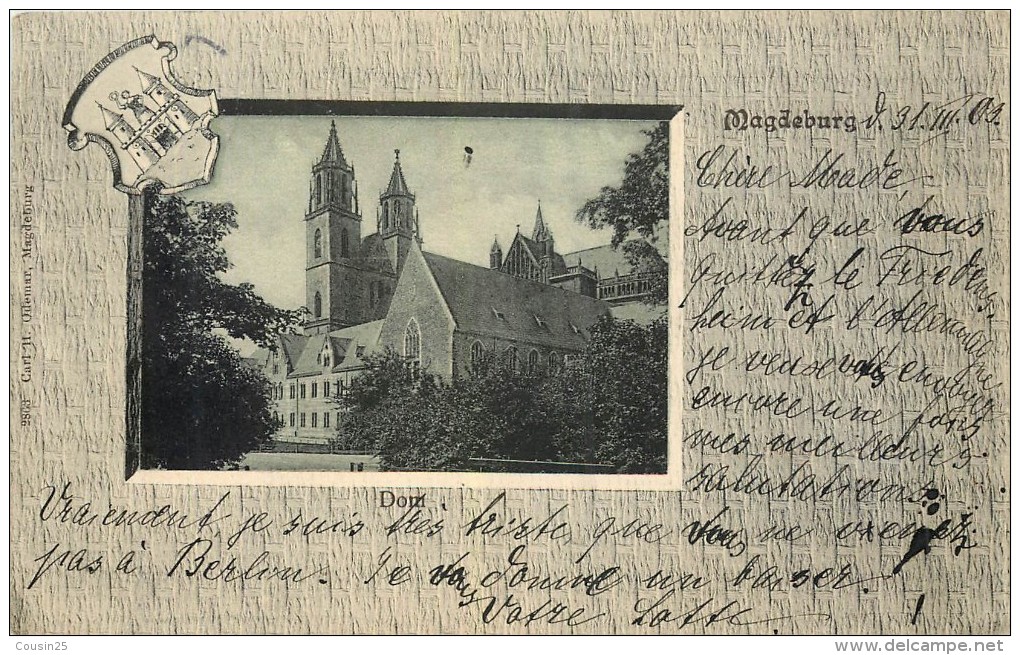 Magdeburg d. 31. III. 02.
Chère Made,
Avant que vous
quittez le Friedens
heim et l'Allemagne
je veux vous envoyer
encore une fois
mes meilleurs
salutations.
Vraiement, je suis très triste, que vous ne venez
pas à Berlin. Je vous donne un baiser.
Votre Lotte
Dom
2863 Carl M. Odemar, Magdeburg
Cousin25
delcampe.net